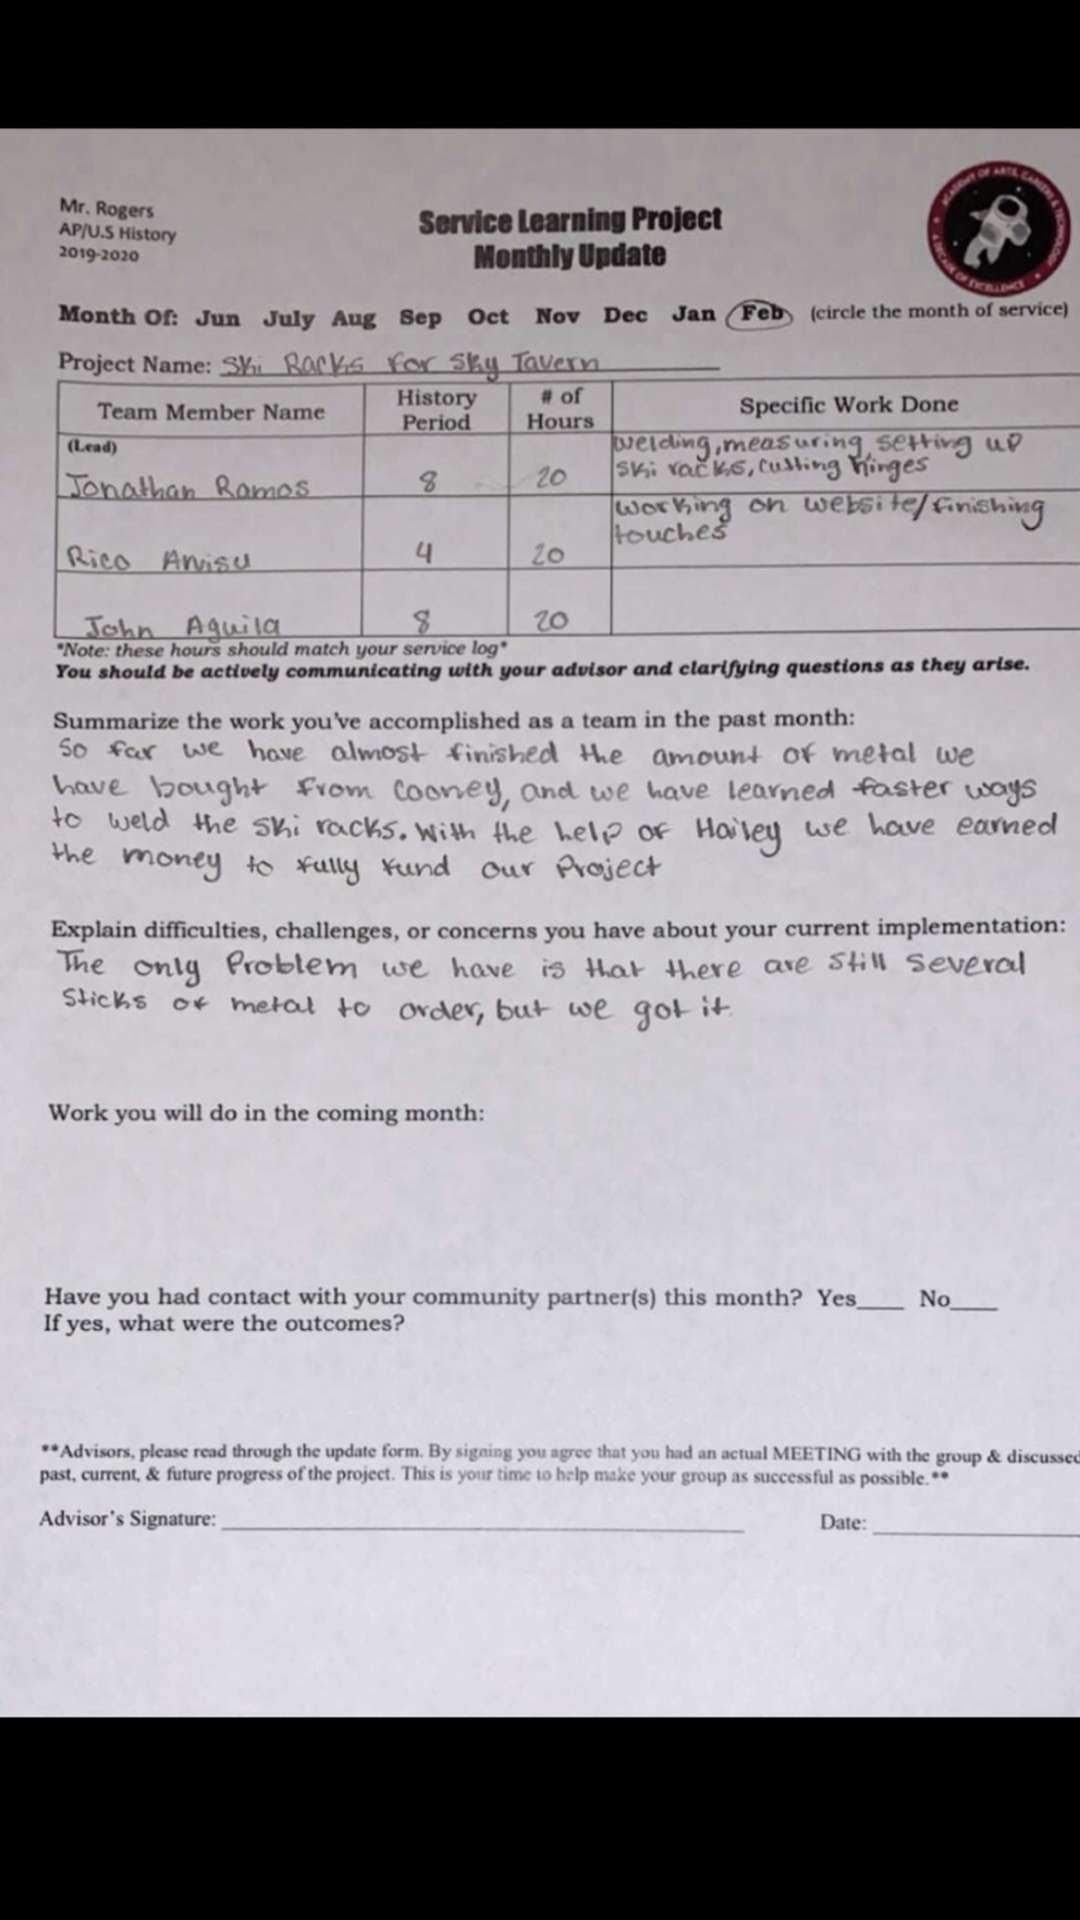 Mr. Rogers
AP/U.S History
2019-2020
Service Learning Project
Monthly Update
ACADEMY OF ARTS, CAREERS & TECHNOLOGY
A DECADE OF EXCELLENCE
Month Of: Jun July Aug Sep Oct Nov Dec Jan Feb (circle the month of service)
Project Name: Ski Racks for Sky Tavern
Team Member Name History Period # of Hours Specific Work Done
(Lead) Jonathan Ramos 8 20 welding, measuring, setting up
ski racks, cutting hinges
Rico Anisu 4 20 working on website/finishing
touches
John Aguila 8 20
*Note: these hours should match your service log*
You should be actively communicating with your advisor and clarifying questions as they arise.
Summarize the work you've accomplished as a team in the past month:
So far we have almost finished the amount of metal we
have bought from Cooney, and we have learned faster ways
to weld the ski racks. With the help of Hailey we have earned
the money to fully fund our Project
Explain difficulties, challenges, or concerns you have about your current implementation:
The only Problem we have is that there are still several
sticks of metal to order, but we got it.
Work you will do in the coming month:
Have you had contact with your community partner(s) this month? Yes____ No____
If yes, what were the outcomes?
**Advisors, please read through the update form. By signing you agree that you had an actual MEETING with the group & discussed
past, current, & future progress of the project. This is your time to help make your group as successful as possible.**
Advisor's Signature: ____ Date: ____